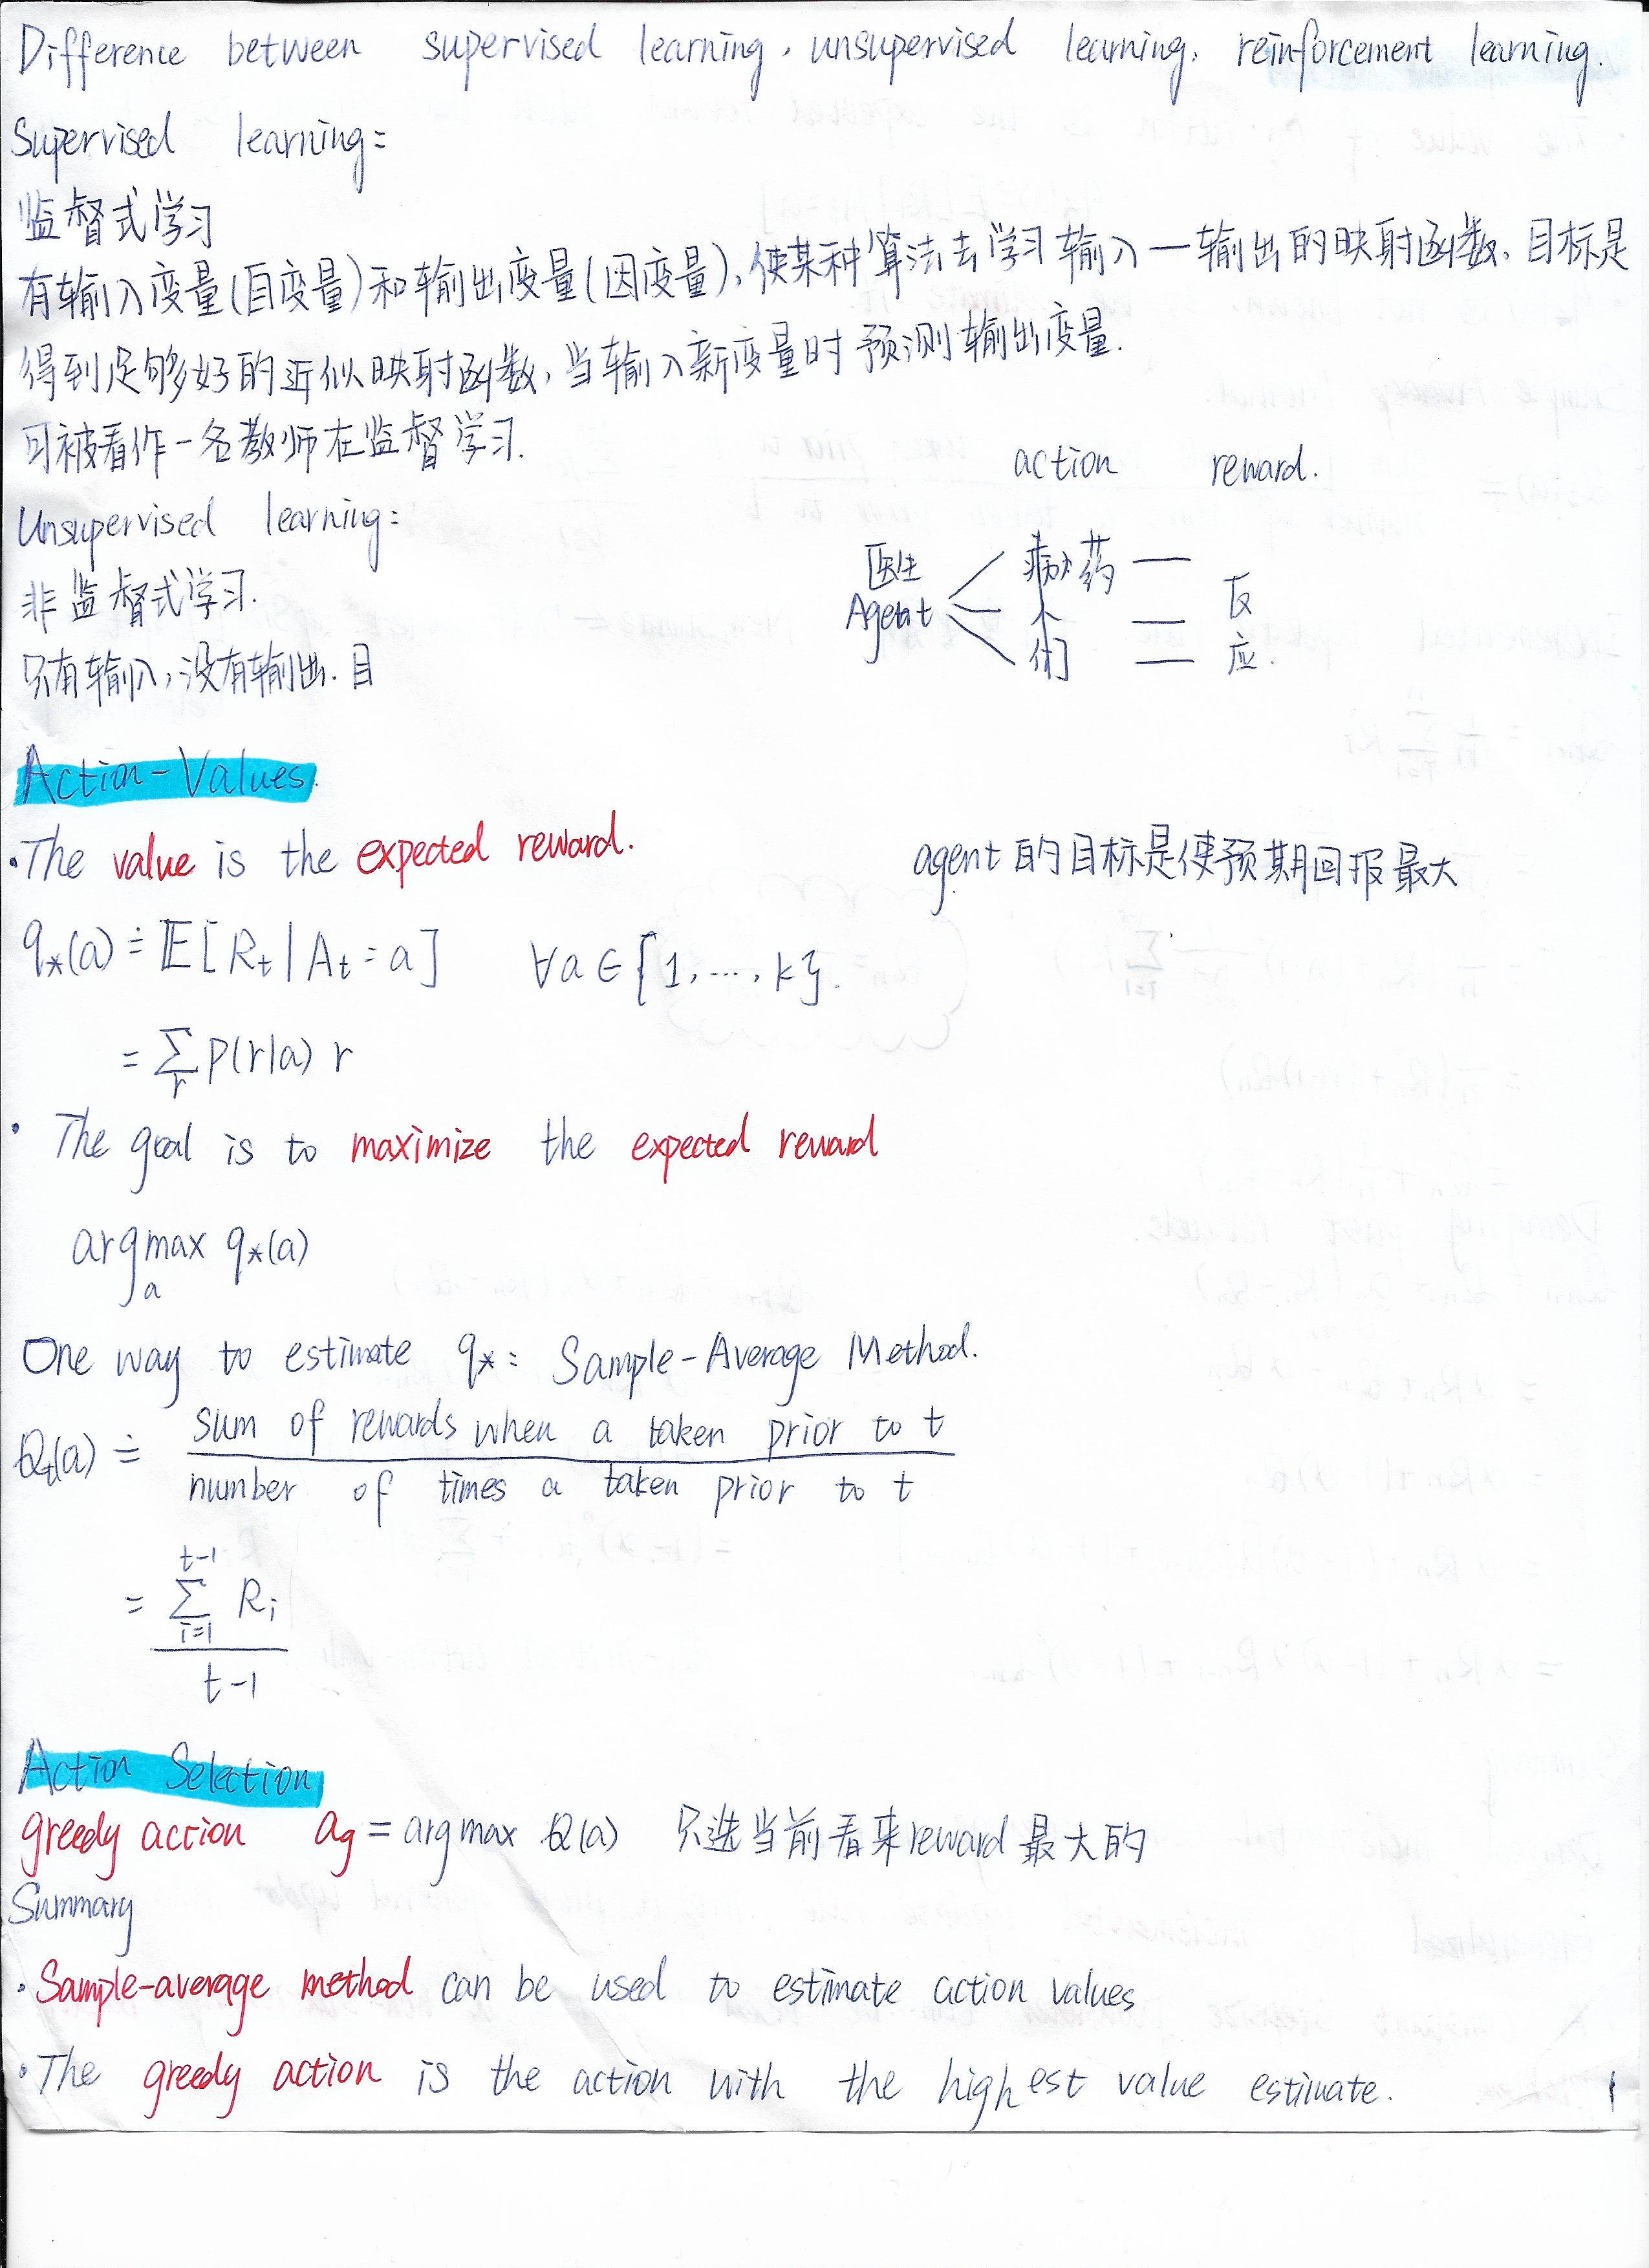 Difference between supervised learning, unsupervised learning, reinforcement learning.
Supervised learning:
监督式学习
有输入变量(自变量)和输出变量(因变量),使某种算法去学习输入—输出的映射函数.目标是
得到足够好的近似映射函数,当输入新变量时预测输出变量.
可被看作一名教师在监督学习.
action reward.
Unsupervised learning:
医生 药
Agent 人 反
非监督式学习.
们 应.
只有输入,没有输出.目
Action-Values.
·The value is the expected reward.
agent的目标是使预期回报最大
q*(a) ≐ 𝔼[Rt|At=a] ∀a∈{1,...,k}.
= Σr p(r|a) r
· The goal is to maximize the expected reward
argmax q*(a)
a
One way to estimate q*: Sample-Average Method.
sum of rewards when a taken prior to t
Qt(a) ≐
number of times a taken prior to t
t-1
= Σ Ri
i=1
t-1
Action Selection
greedy action ag = argmax Q(a) 只选当前看来reward最大的
Summary
·Sample-average method can be used to estimate action values
·The greedy action is the action with the highest value estimate.
1